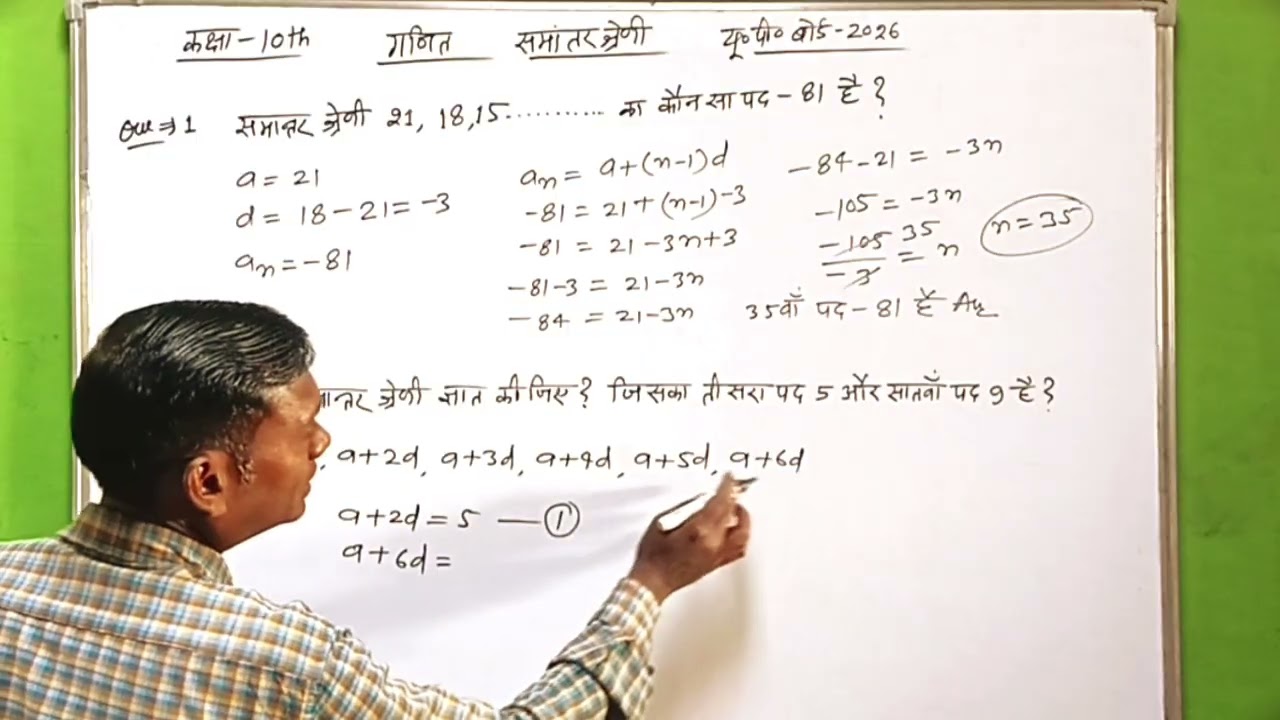 कक्षा-10th गणित समांतर श्रेणी यू०पी० बोर्ड-2026
Que⇒1 समान्तर श्रेणी 21, 18, 15........... का कौन सा पद -81 है?
a = 21
d = 18-21 = -3
an = -81
an = a+(n-1)d
-81 = 21+(n-1)-3
-81 = 21-3n+3
-81-3 = 21-3n
-84 = 21-3n
-84-21 = -3n
-105 = -3n
-105/-3 35 = n
n=35
35वाँ पद -81 है Ans
श्रेणी ज्ञात कीजिए? जिसका तीसरा पद 5 और सातवाँ पद 9 है?
, a+2d, a+3d, a+4d, a+5d, a+6d
a+2d = 5 — ①
a+6d =